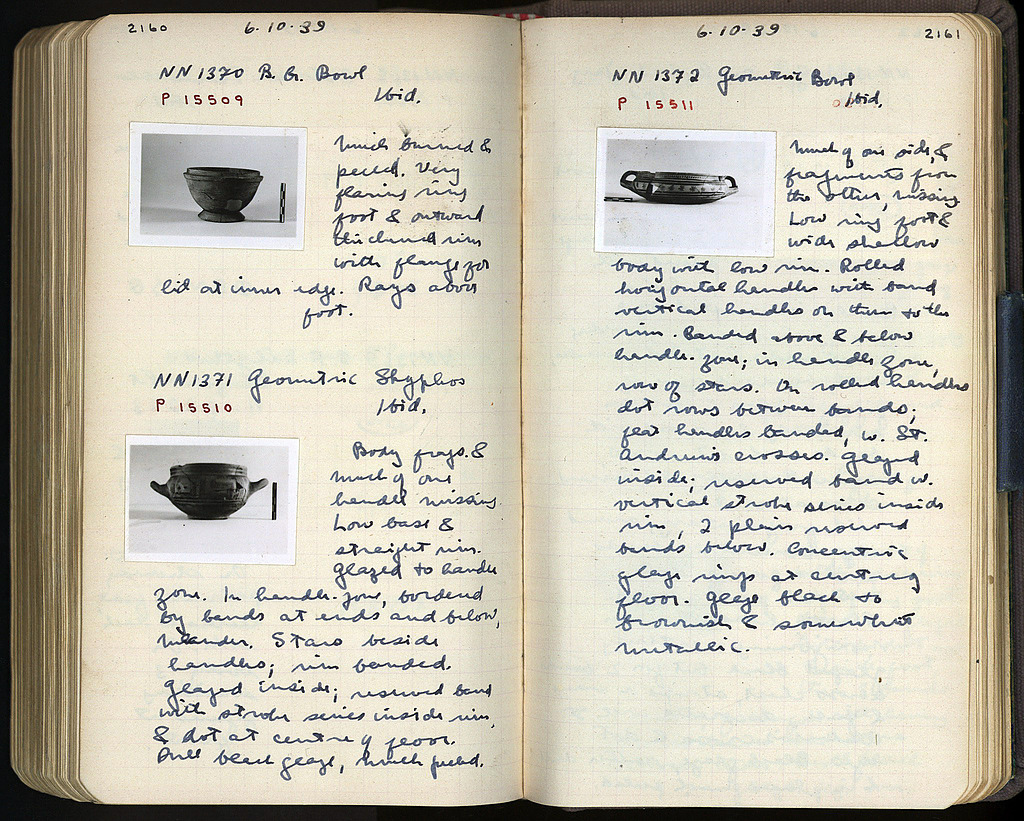 2160
6·10·39
NN 1370 B. G. Bowl
P 15509 Ibid.
Much burned &
peeled. Very
flaring ring
foot & outward
thickened rim
with flange for
lid at inner edge. Rays above
foot.
NN1371 Geometric Skyphos
P 15510 Ibid.
Body frags. &
much of one
handle missing.
Low base &
straight rim.
Glazed to handle
zone. In handle-zone, bordered
by bands at ends and below,
meander. Stars beside
handles; rim banded.
Glazed inside; reserved band
with stroke series inside rim,
& dot at centre of floor.
Dull black glaze, much peeled.
6·10·39
2161
NN 1372 Geometric Bowl
P 15511 Ibid.
Much of one side, &
fragments from
the other, missing
Low ring foot &
wide shallow
body with low rim. Rolled
horizontal handles with band
vertical handles on them to the
rim. Banded above & below
handle-zone; in handle zone,
row of stars. On rolled handles
dot rows between bands;
flat handles banded, w. St.
Andrew's crosses. Glazed
inside; reserved band w.
vertical stroke series inside
rim, 2 plain reserved
bands below. Concentric
glaze rings at centre of
floor. Glaze black to
brownish & somewhat
metallic.